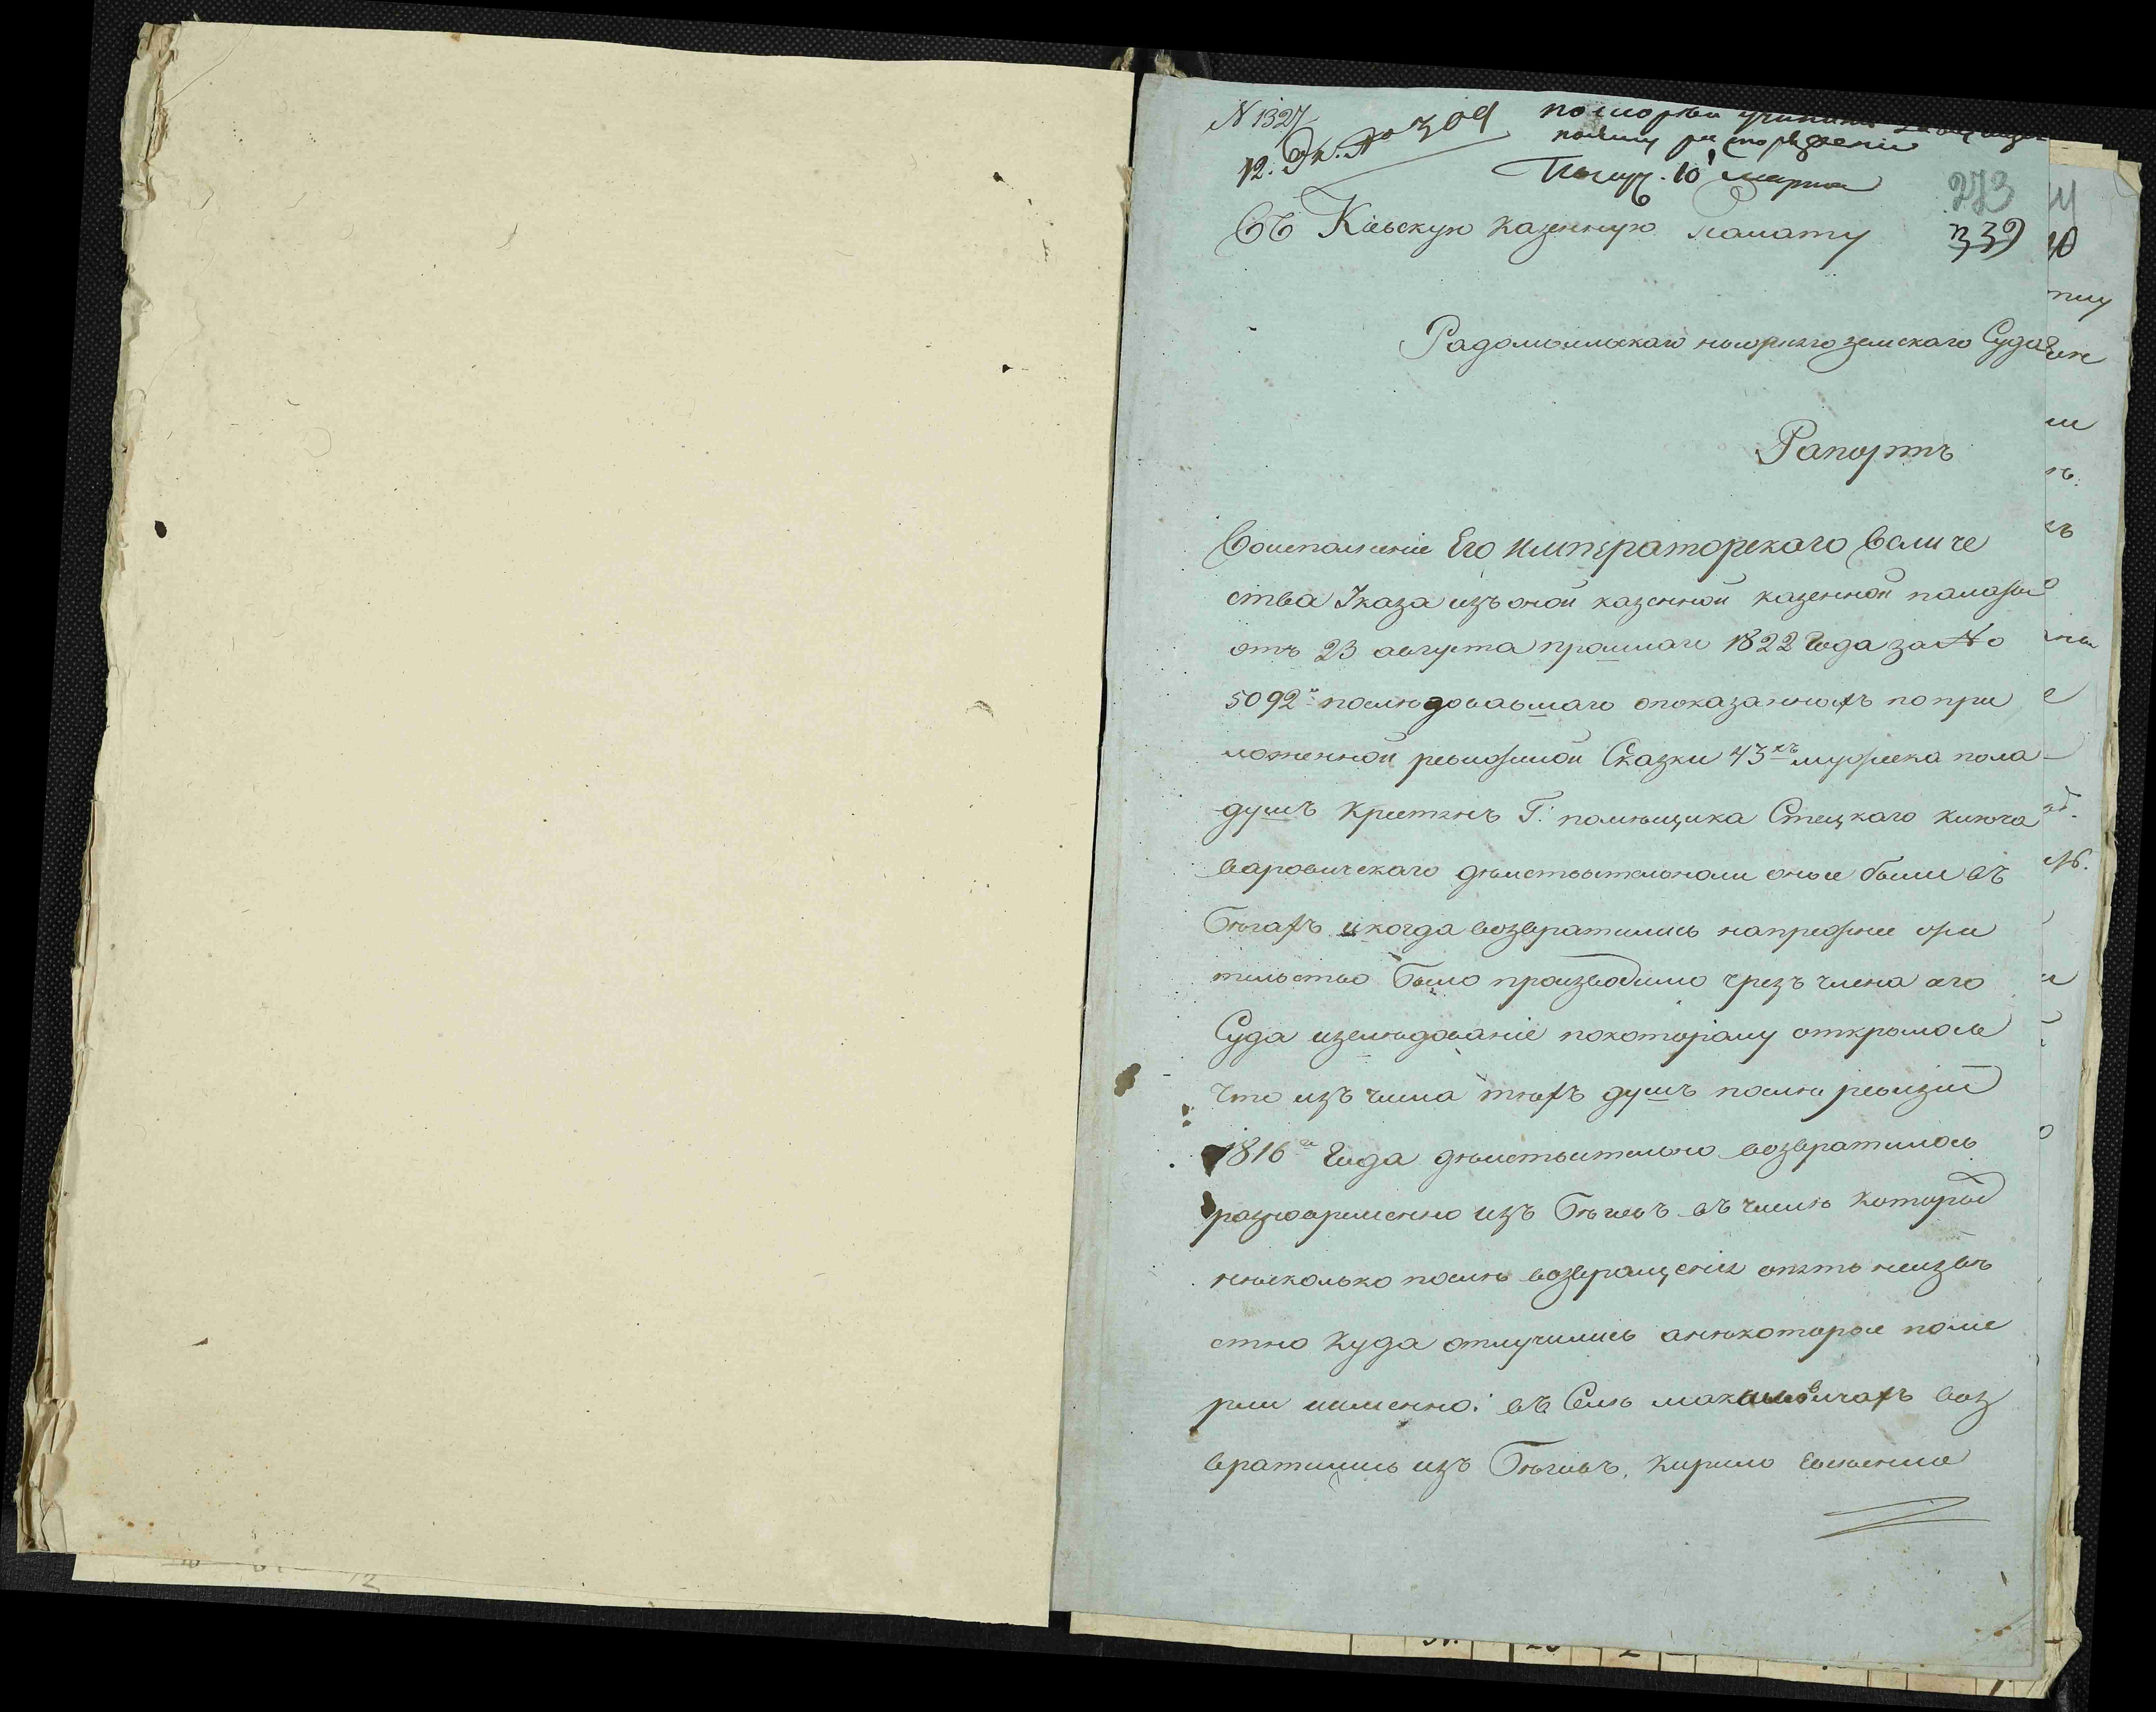 N 1327
12. Эк. № 309
Получ. 10 марта
273
339
Въ Кіевскую казенную Палату
Радомысльскаго нисшаго земскаго Суда
Рапортъ
Воисполненіе Его Императорскаго Величе
ства Указа изъ оной казенной казенной палаты
отъ 23 августа прошлаго 1822 Года за №
5092м послѣдовавшаго опоказанныхъ попри
ложенной ревизской Сказки 43хъ мужеска пола
душъ крестянъ Г. помѣщика Стецкаго ключа
варовичскаго дѣйствительноли оные были въ
Бѣгахъ икогда возвратились напрежнее жи
тельство было производимо чрезъ члена сего
Суда изслѣдованіе покоторіому открылось
что изъ числа тѣхъ душъ послѣ ревизіи
1816го Года дѣйствительно возвратилось
разновременно изъ Бѣговъ въ числѣ которыхъ
нѣсколько послѣ возвращенія опять неизвѣ
стно куда отлучились анѣкоторые поме
рли именно: въ Селѣ максимовичахъ воз
вратились изъ Бѣговъ, Кирило